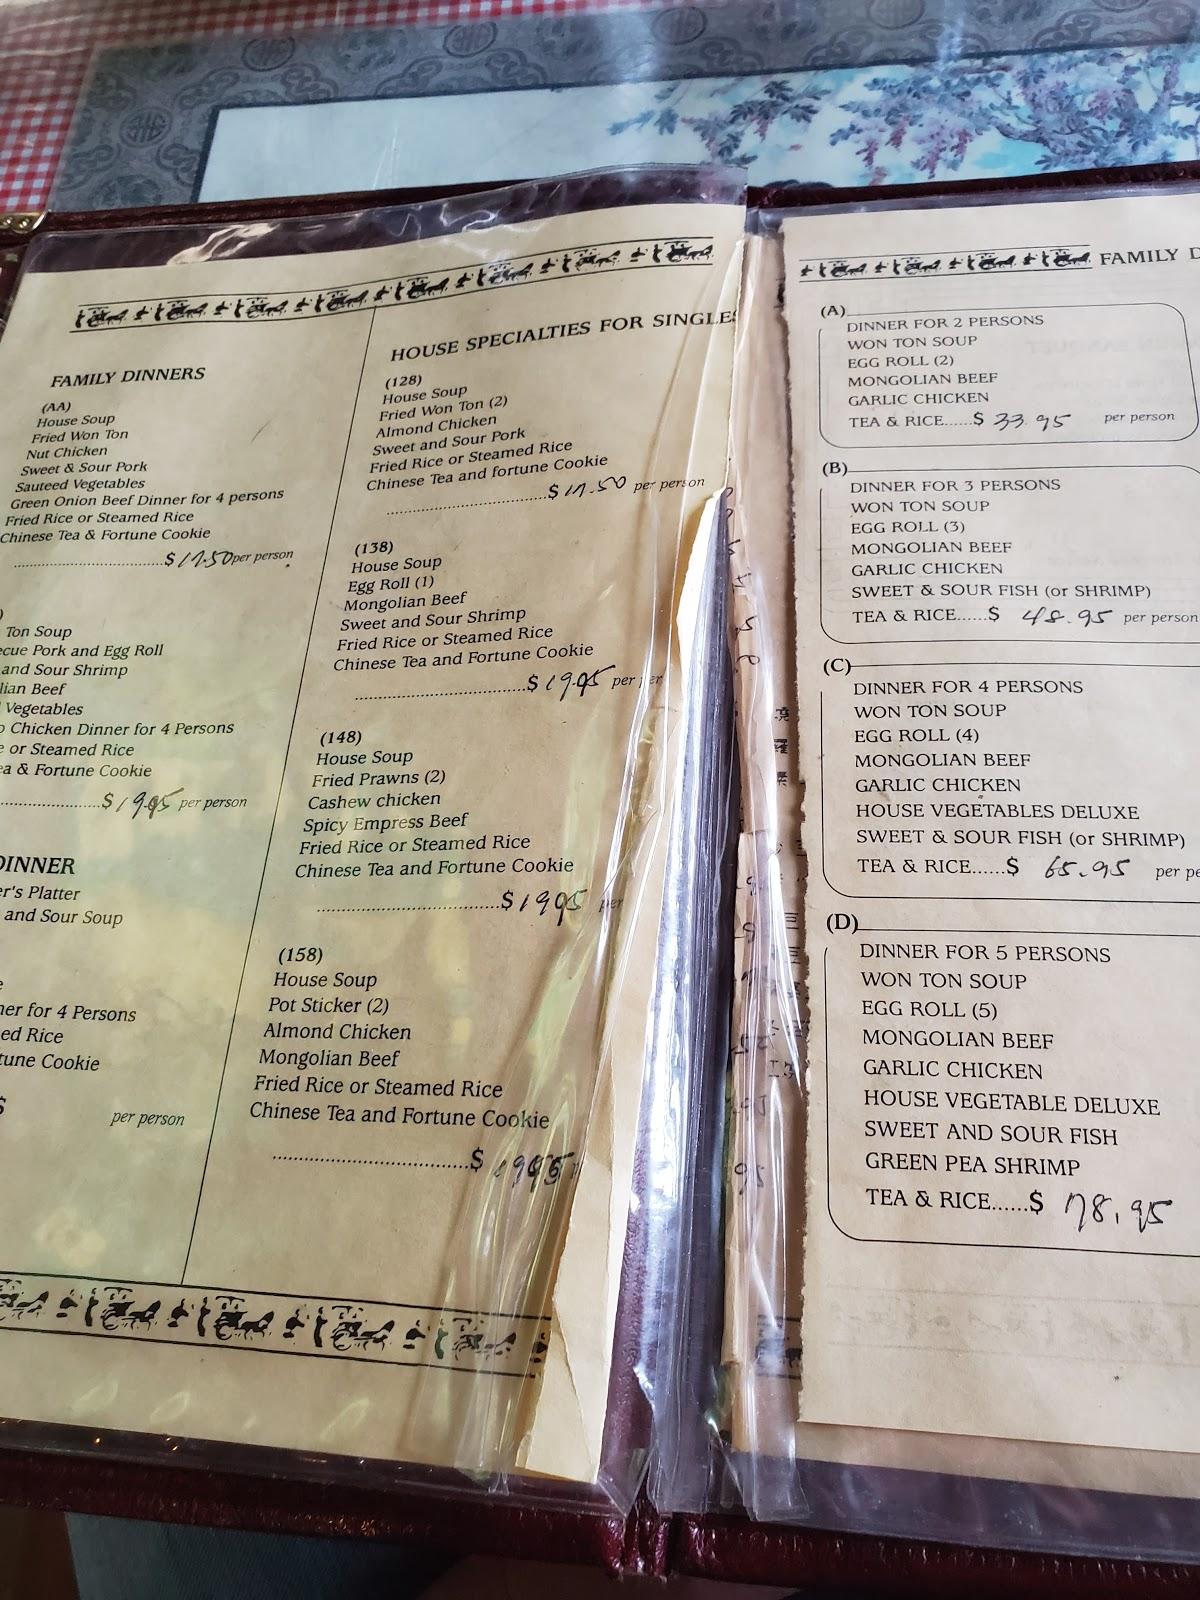 FAMILY DINNERS
(AA)
House Soup
Fried Won Ton
Nut Chicken
Sweet & Sour Pork
Sauteed Vegetables
Green Onion Beef Dinner for 4 persons
Fried Rice or Steamed Rice
Chinese Tea & Fortune Cookie
$17.50 per person
Ton Soup
ecue Pork and Egg Roll
and Sour Shrimp
lian Beef
Vegetables
Chicken Dinner for 4 Persons
or Steamed Rice
ea & Fortune Cookie
$19.95 per person
DINNER
er's Platter
and Sour Soup
ner for 4 Persons
ed Rice
tune Cookie
$ per person
HOUSE SPECIALTIES FOR SINGLES
(128)
House Soup
Fried Won Ton (2)
Almond Chicken
Sweet and Sour Pork
Fried Rice or Steamed Rice
Chinese Tea and fortune Cookie
$17.50 per person
(138)
House Soup
Egg Roll (1)
Mongolian Beef
Sweet and Sour Shrimp
Fried Rice or Steamed Rice
Chinese Tea and Fortune Cookie
$19.95 per per
(148)
House Soup
Fried Prawns (2)
Cashew chicken
Spicy Empress Beef
Fried Rice or Steamed Rice
Chinese Tea and Fortune Cookie
$1995 per
(158)
House Soup
Pot Sticker (2)
Almond Chicken
Mongolian Beef
Fried Rice or Steamed Rice
Chinese Tea and Fortune Cookie
$1995
FAMILY D
(A)
DINNER FOR 2 PERSONS
WON TON SOUP
EGG ROLL (2)
MONGOLIAN BEEF
GARLIC CHICKEN
TEA & RICE......$ 33.95 per person
(B)
DINNER FOR 3 PERSONS
WON TON SOUP
EGG ROLL (3)
MONGOLIAN BEEF
GARLIC CHICKEN
SWEET & SOUR FISH (or SHRIMP)
TEA & RICE......$ 48.95 per person
(C)
DINNER FOR 4 PERSONS
WON TON SOUP
EGG ROLL (4)
MONGOLIAN BEEF
GARLIC CHICKEN
HOUSE VEGETABLES DELUXE
SWEET & SOUR FISH (or SHRIMP)
TEA & RICE......$ 65.95 per pe
(D)
DINNER FOR 5 PERSONS
WON TON SOUP
EGG ROLL (5)
MONGOLIAN BEEF
GARLIC CHICKEN
HOUSE VEGETABLE DELUXE
SWEET AND SOUR FISH
GREEN PEA SHRIMP
TEA & RICE......$ 78.95